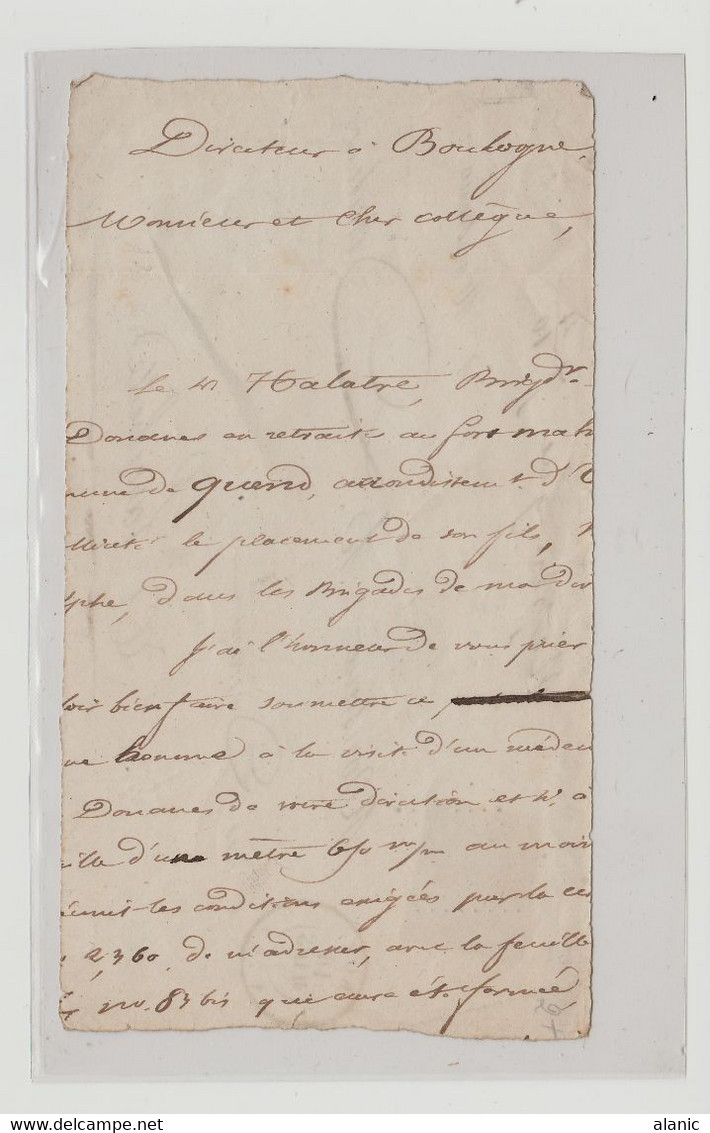 Directeur à Boulogne,
Monsieur et Cher collègue,
Le Sr Halatre, Brigd.r
Douanes en retraite au fort mah
mune de quend, arrondissemt. d'
llicite le placement de son fils,
lphe, dans les Brigades de ma dir
J'ai l'honneur de vous prier
loir bien faire soumettre ce
ne homme à la visite d'un médec
Douanes de votre direction et s'il a
ille d'un mètre 650 m/m au moin
éunit les conditions exigées par la cir
2,360, de m'adresser, avec la feuille
no. 83 bis qui aura été formée,
alanic